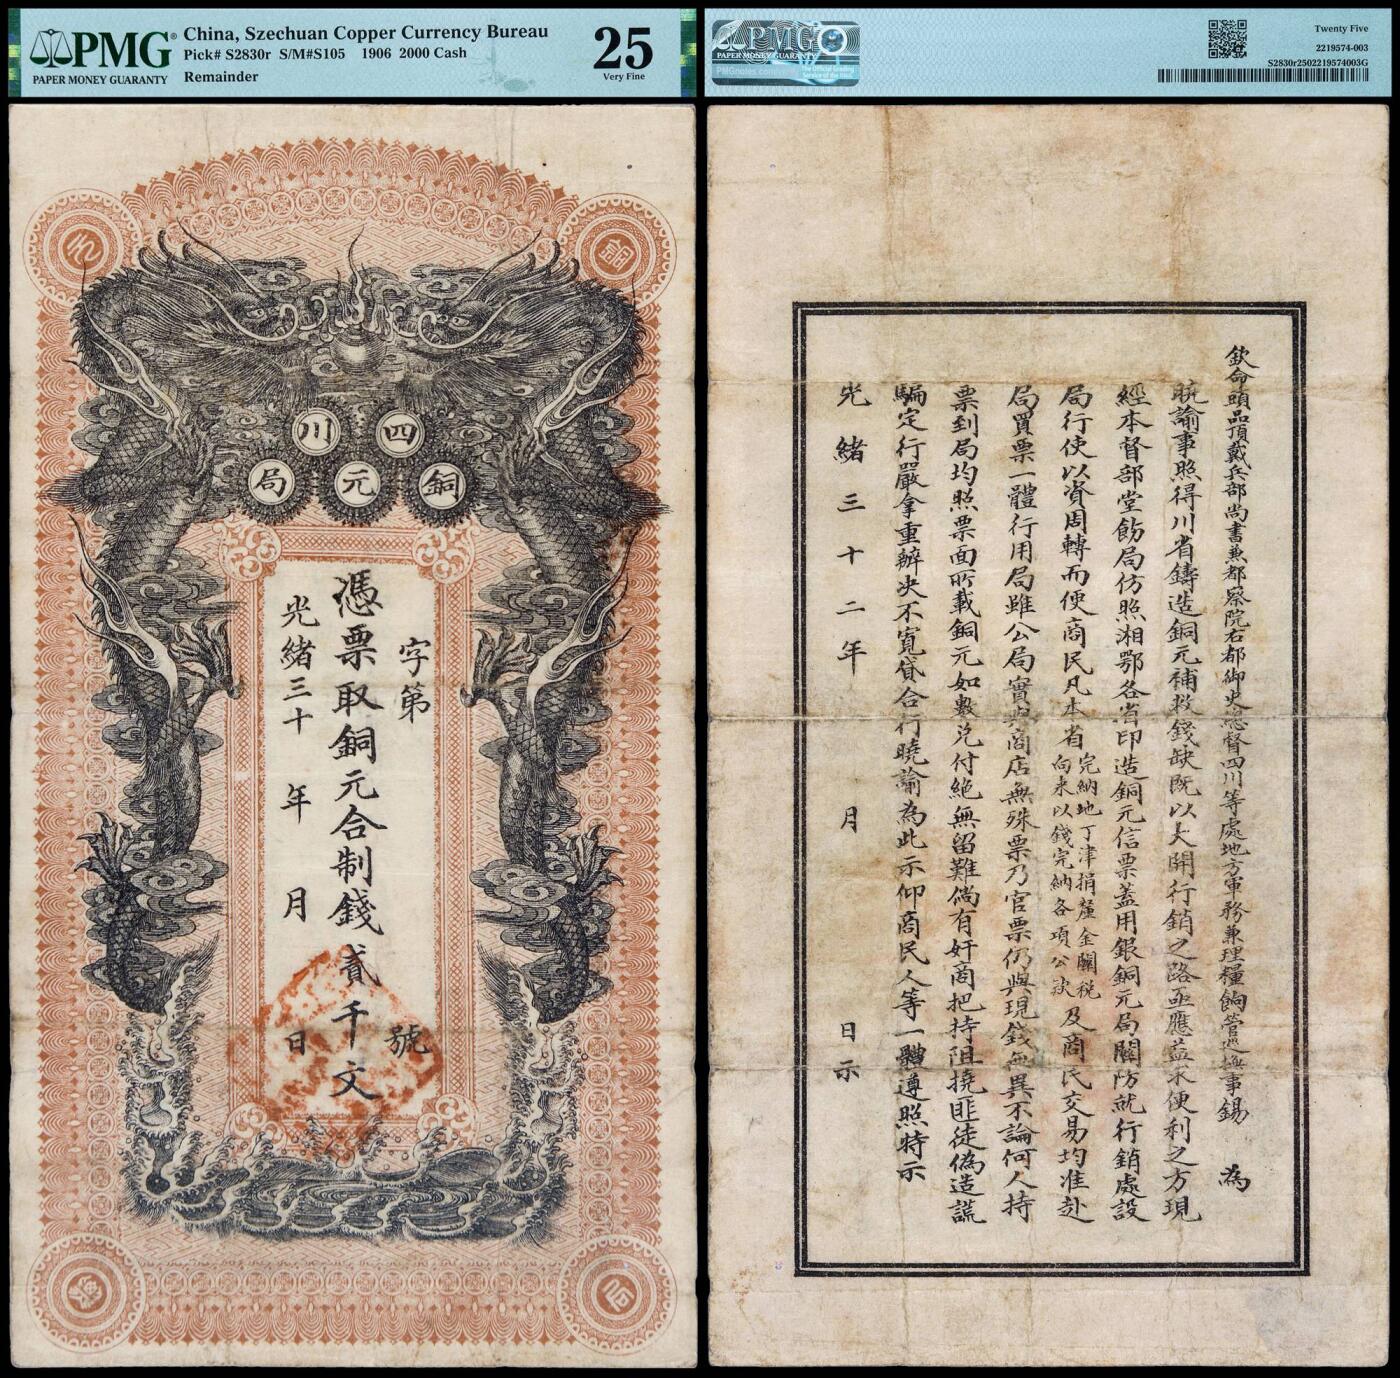 PMG
PAPER MONEY GUARANTY
China, Szechuan Copper Currency Bureau
Pick# S2830r S/M#S105 1906 2000 Cash
Remainder
25
Very Fine
PMG
PAPER MONEY GUARANTY
Twenty Five
2219574-003
S2830r2502219574003G
四川
銅元局
字第 號
憑票取銅元合制錢貳千文
光緒三十 年 月 日
欽命頭品頂戴兵部尚書兼都察院右都御史總督四川等處地方軍務兼理糧餉管巡撫事錫 為
曉諭事照得川省鑄造銅元補救錢缺既以大開行銷之路亟應益求便利之方現
經本督部堂飭局仿照湘鄂各省印造銅元信票蓋用銀銅元局關防就行銷處設
局行使以資周轉而便商民凡本省完納地丁津捐釐金關稅向來以錢完納各項公款及商民交易均准赴
局買票一體行用局雖公局實與商店無殊票乃官票仍與現錢無異不論何人持
票到局均照票面所載銅元如數兌付絕無留難倘有奸商把持阻撓匪徒偽造謊
騙定行嚴拿重辦決不寬貸合行曉諭為此示仰商民人等一體遵照特示
光緒三十二年 月 日示